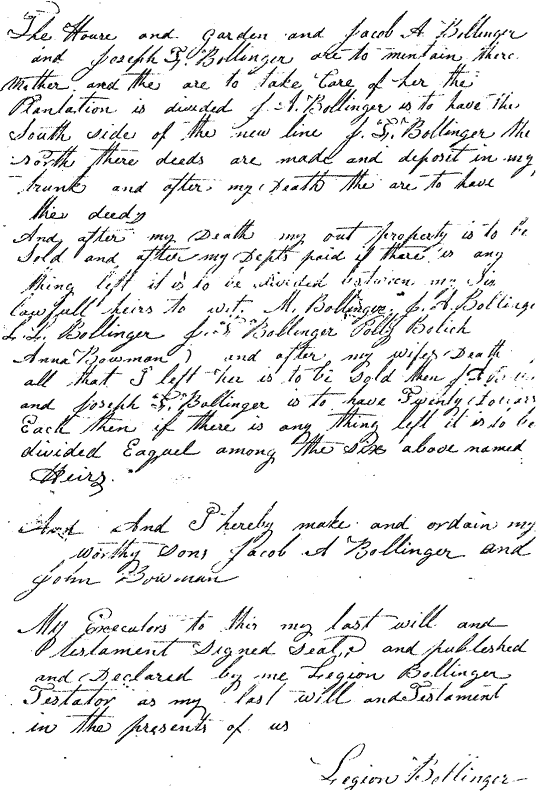 The House and Garden and Jacob A Bollinger
and Joseph F. Bollinger are to mentain there
Mother and the are to take Care of her the
Plantation is divided J. A. Bollinger is to have the
South side of the new line J. F. Bollinger the
North there deeds are made and deposit in my
trunk and after my Death the are to have
the deeds
And after my Death my out property is to be
Sold and after my Depts paid if there is any
thing left it is to be divided between my Six
lawfull heirs to wit, M. Bollinger, J. A. Bollinge
L. L. Bollinger J. F. Bollinger Polly Bolick
Anna Bowman) and after my wifes Death
all that I left her is to be sold then
and Joseph F. Bollinger is to have Twenty Dollars
Each then if there is any thing left it is to be
divided Eaquel among the six above named
Heirs.
And And I hereby make and ordain my
worthy sons Jacob A Bollinger and
John Bowman
My Executors to this my last will and
Testament Signed Seald and published
and Declared by me Legion Bollinger
Testator as my last will and Testament
in the presents of us
Legion Bollinger